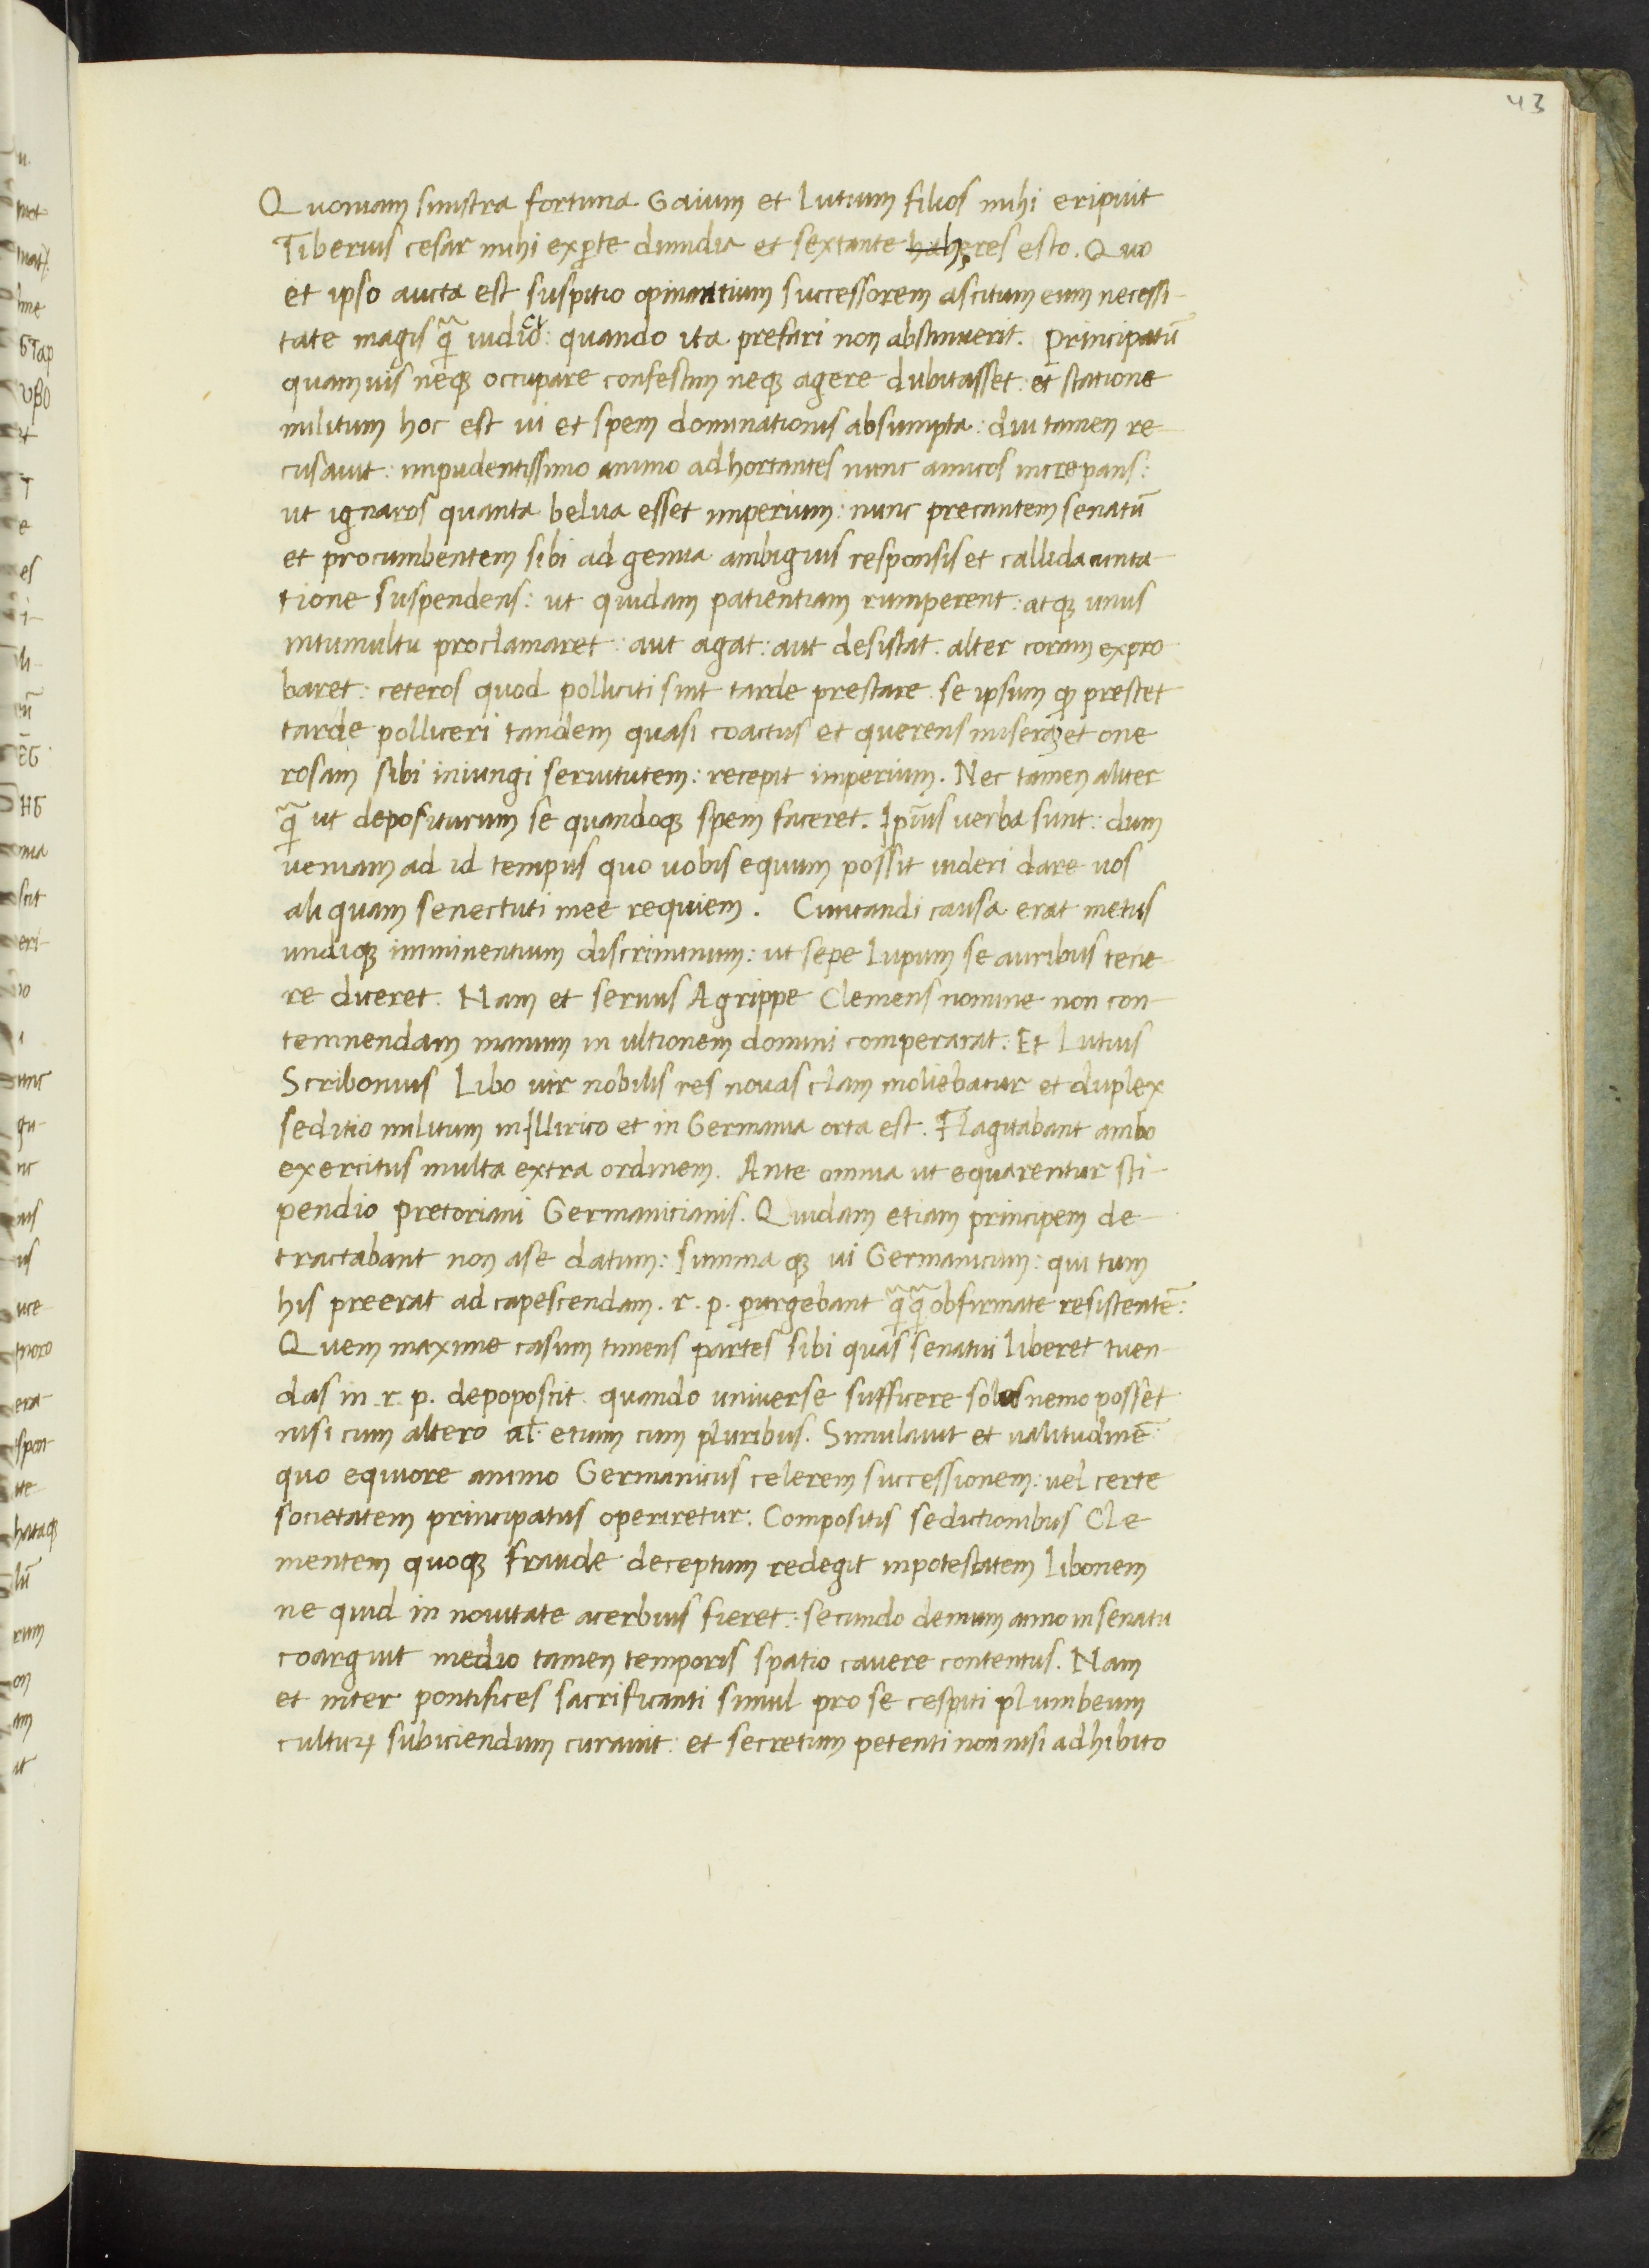 43
Quoniam sinistra fortuna Gaium et Lutium filios mihi eripuit
Tiberius cesar mihi ex parte dimidia et sextante heres esto. Quo
et ipso aucta est suspitio opinantium successorem ascitum eum necessi-
tate magis q̃ iuditio: quando ita prefari non abstinuerit. Principatũ
quamuis neqꝫ occupare confestim neqꝫ agere dubitasset: et statione
militum hoc est ui et spem dominationis absumpta: diu tamen re-
cusauit: impudentissimo animo adhortantes nunc amicos increpans:
ut ignaros quanta belua esset imperium: nunc precantem senatũ
et procumbentem sibi ad genua ambiguis responsis et callida cunta-
tione suspendens: ut quidam patientiam rumperent: atqꝫ unus
intumultu proclamaret: aut agat: aut desistat. alter coram expro
baret: ceteros quod polliciti sint tarde prestare se ipsum qꝫ prestet
tarde polliceri tandem quasi coactus et querens miserã et one
rosam sibi iniungi seruitutem: recepit imperium. Nec tamen aliter
q̃ ut depositurum se quandoqꝫ spem faceret. Ipĩus uerba sunt: dum
ueniam ad id tempus quo uobis equum possit uideri dare uos
aliquam senectuti mee requiem. Cunctandi causa erat metus
undiqꝫ imminentium discriminum: ut sepe lupum se auribus tene-
re diceret. Nam et seruus Agrippe Clemens nomine non con-
temnendam manum in ultionem domini comperarat. Et Lutius
Scribonius Libo uir nobilis res nouas clam moliebatur et duplex
seditio militum in Illirico et in Germania orta est. Flagitabant ambo
exercitus multa extra ordinem. Ante omnia ut equarentur sti-
pendio pretoriani Germanicianis. Quidam etiam principem de-
tractabant non ase datum: summa qꝫ ui Germanicum: qui tum
his preerat ad capescendam. r. p. ꝑurgebant q̃q̃ obfirmate resistentẽ:
Quem maxime casum timens partes sibi quas senatui liberet tuen-
das in. r. p. depoposcit. quando uniuerse sufficere solus nemo posset
nisi cum altero al̵ etiam cum pluribus. Simulauit et ualitudinẽ:
quo equiore animo Germanicus celerem successionem: uel certe
societatem principatus operiretur. Compositis seditionibus Cle
mentem quoqꝫ fraude deceptum redegit inpotestatem Libonem
ne quid in nouitate acerbius fieret: secundo demum anno in senatu
coarguit medio tamen temporis spatio cauere contentus. Nam
et inter pontifices sacrificanti simul pro se cespiti plumbeum
cultuꝝ subiciendum curauit: et secretum petenti non nisi adhibito